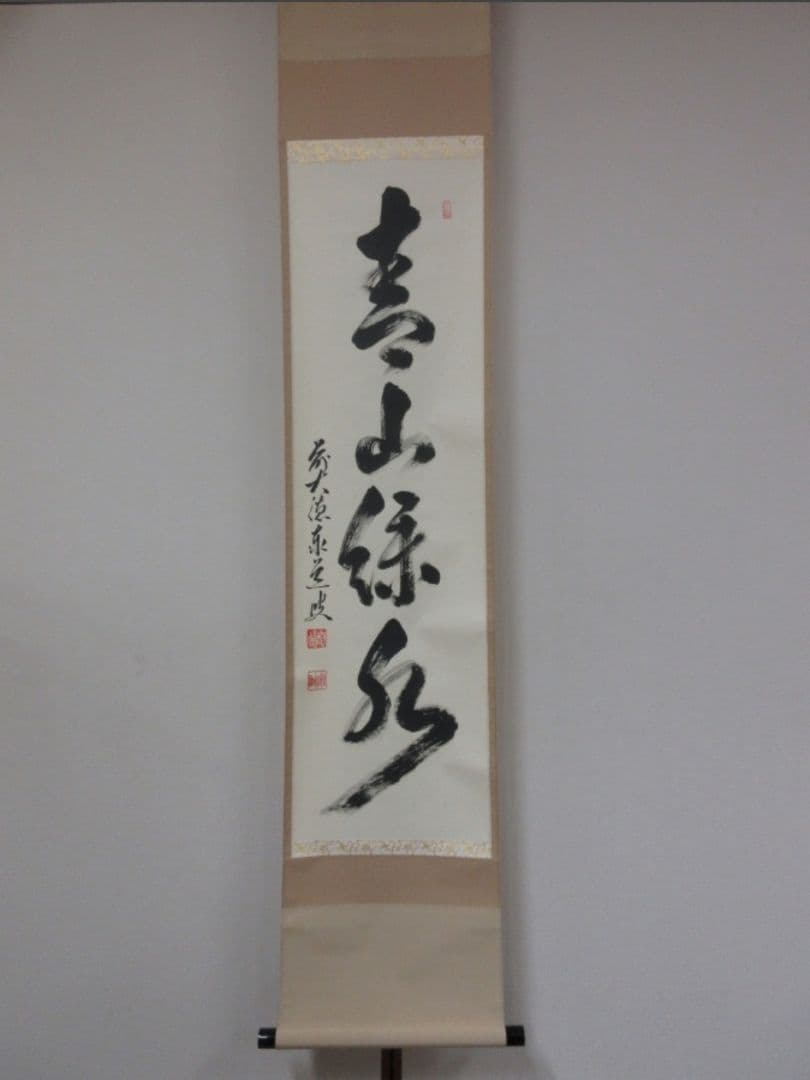 青山緑水
前大徳泰道叟